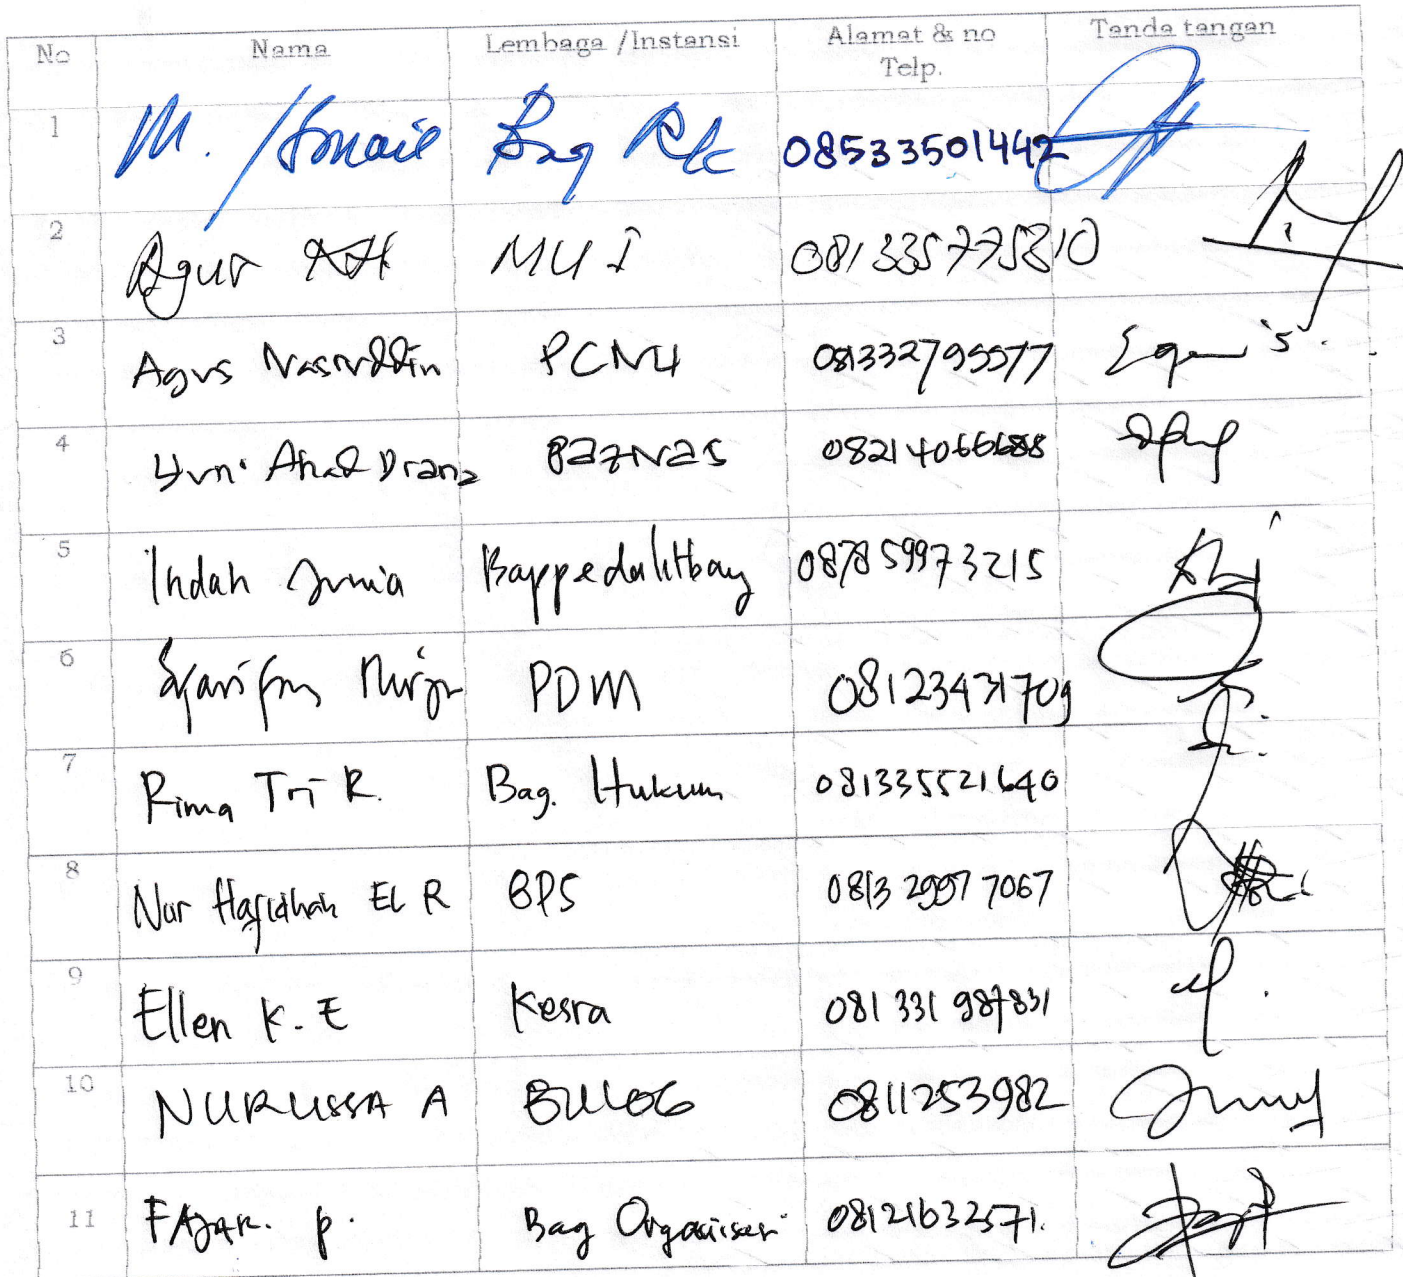 No Nama Lembaga /Instansi Alamat & no Telp. Tanda tangan
1 M. Ismail Bag 08533501442
2 Agus MUI 081335775310
3 Agus Nasruddin PCNU 081332795577
4 BAZNAS 082140666688
5 Indah Junia Bappedalitbang 087859973215
6 PDM 08123431709
7 Rima Tri R. Bag. Hukum 081335521640
8 Nur Hafidhah El R BPS 0813 2997 7067
9 Ellen K. E Kesra 081 331 987831
10 NURULISSA A BULOG 0811253982
11 FAJAR. P. Bag Organisasi 08121632571.